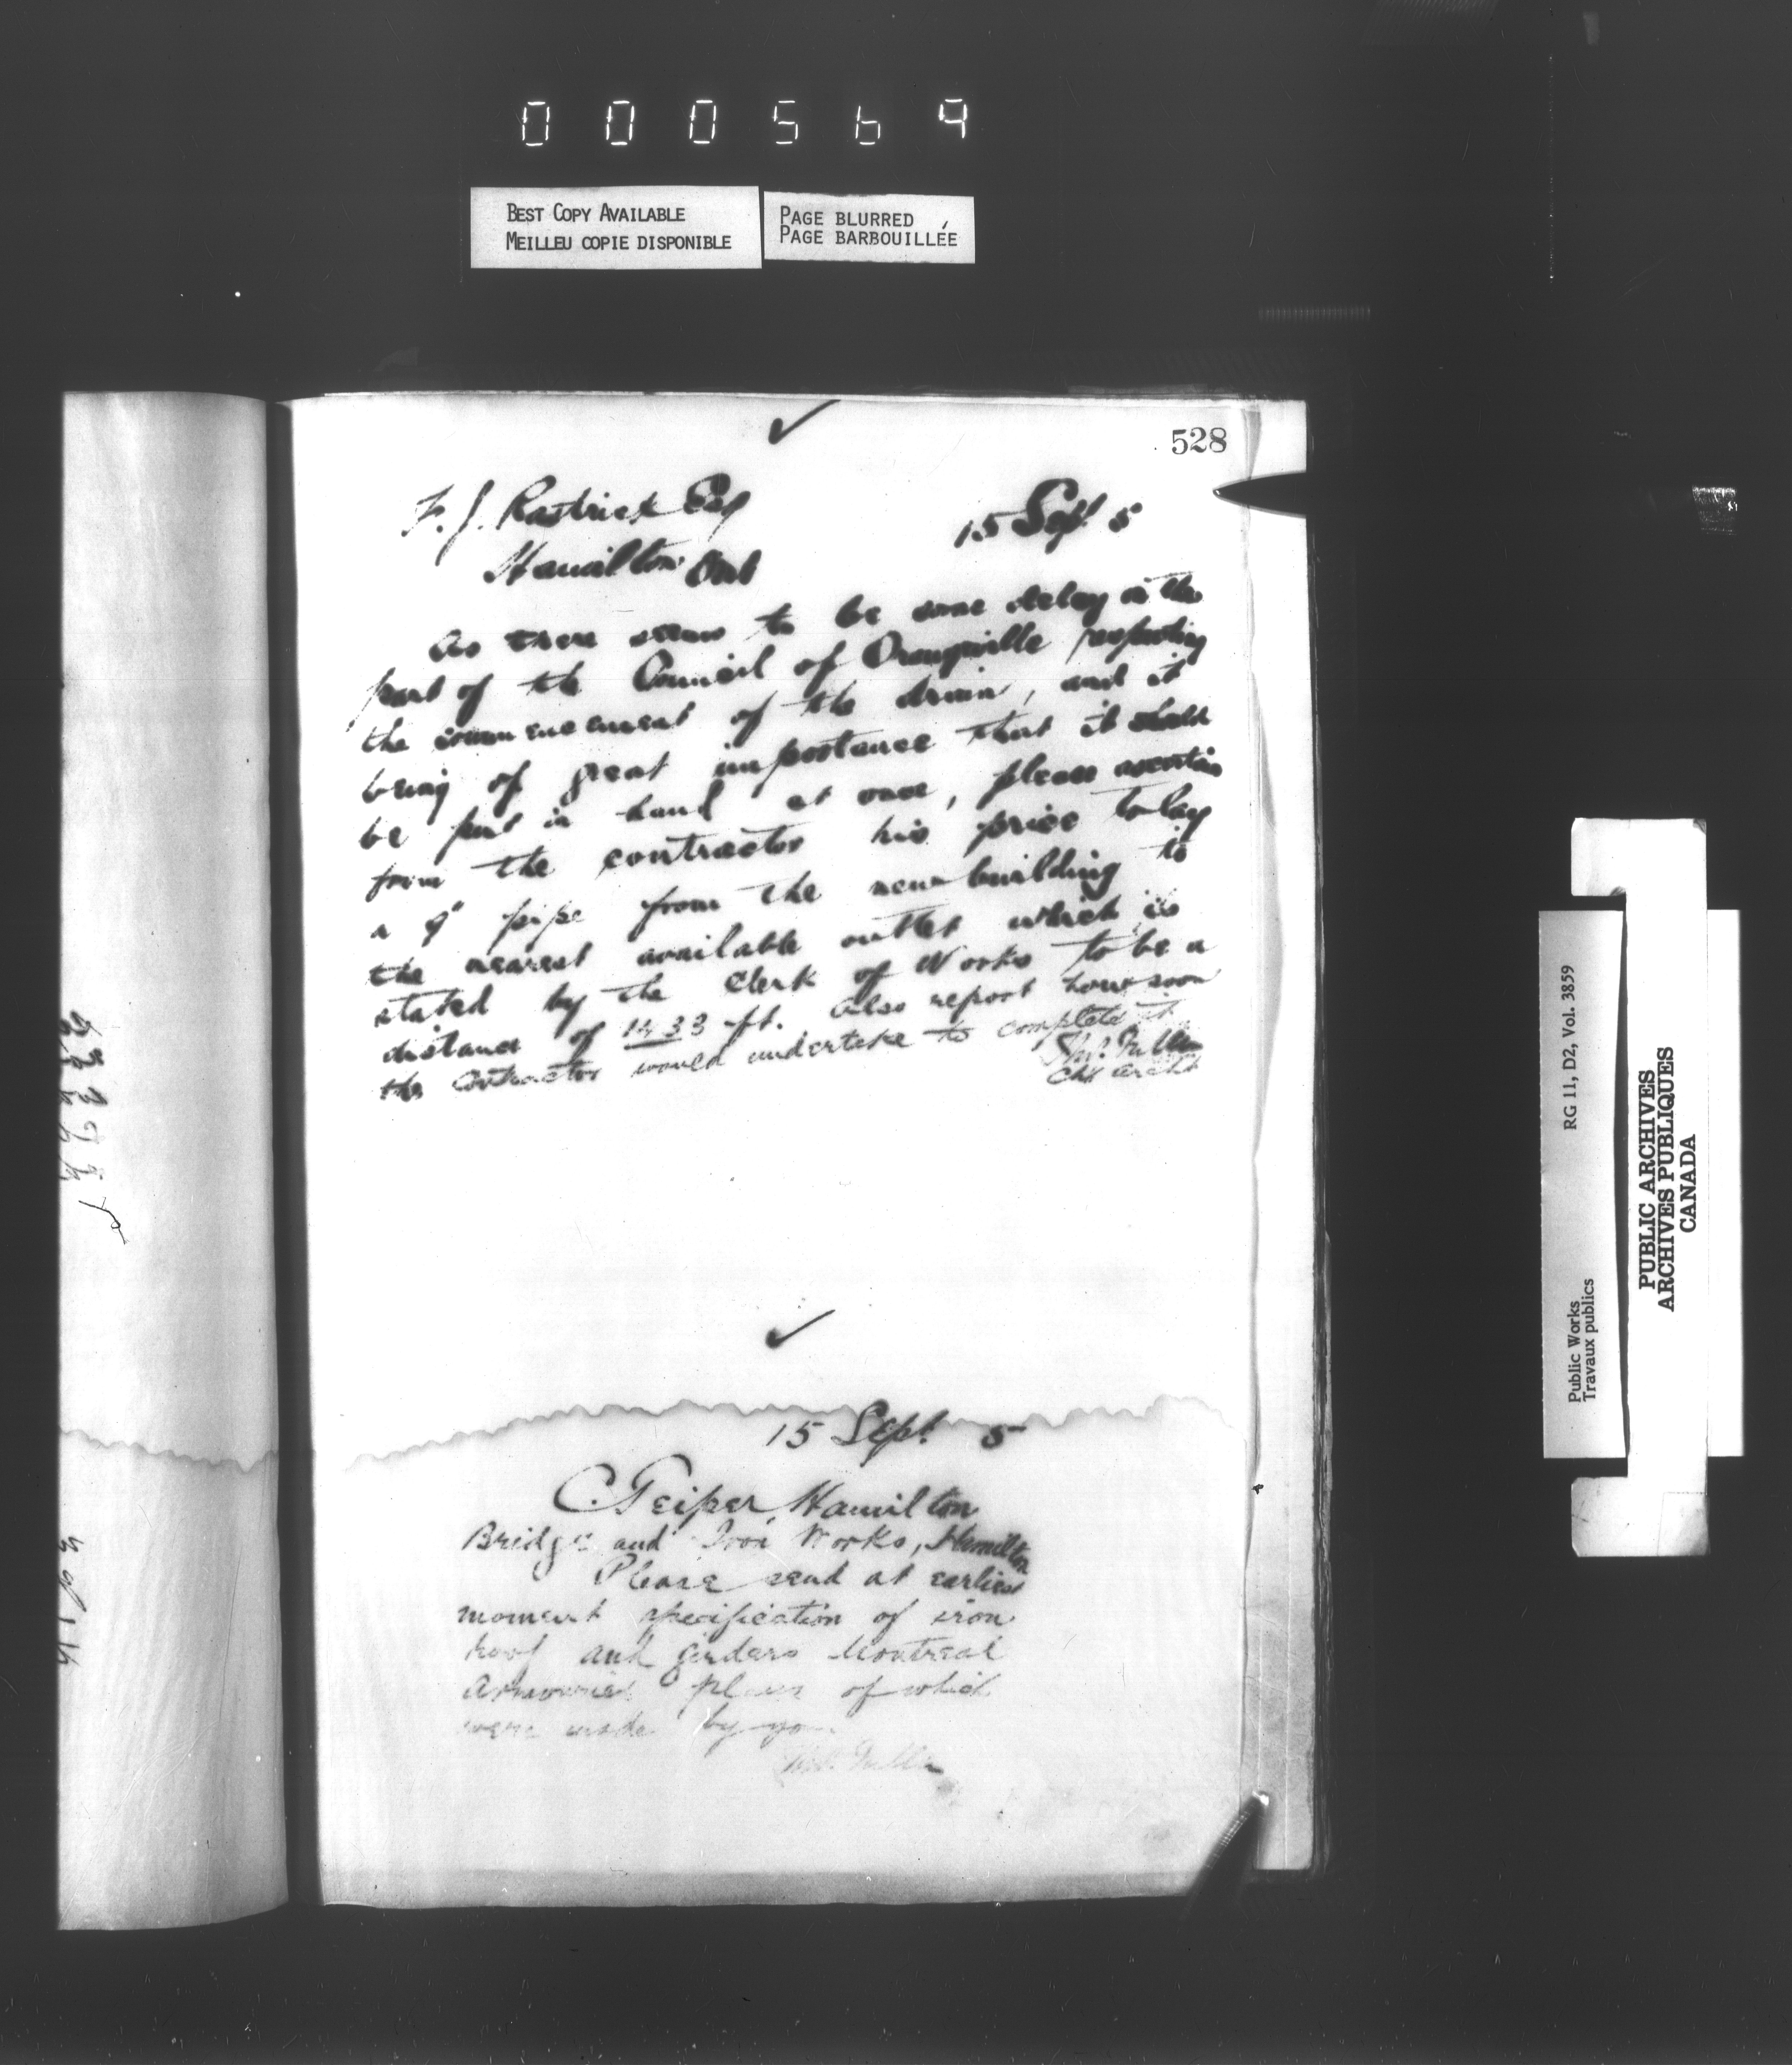 000569
BEST COPY AVAILABLE
MEILLEU COPIE DISPONIBLE
PAGE BLURRED
PAGE BARBOUILLÉE
528
F. J. Rastrick Esq
15 Sept 5
Hamilton Ont
As there seems to be some delay on the
part of the Council of Orangeville respecting
the commencement of the drain, and it
being of great importance that it should
be put in hand at once, please ascertain
from the contractor his price to lay
a 9" pipe from the new building to
the nearest available outlet which is
stated by the Clerk of Works to be a
distance of 1433 ft. Also report how soon
the contractor would undertake to complete it.
Thos. Fuller
Chf Archt
15 Sept 5
C. Teiper, Hamilton
Bridge and Iron Works, Hamilton
Please send at earliest
moment specification of iron
roof and girders Montreal
Armouries plans of which
were made by you
Thos. Fuller
RG 11, D2, Vol. 3859
Public Works
Travaux publics
PUBLIC ARCHIVES
ARCHIVES PUBLIQUES
CANADA